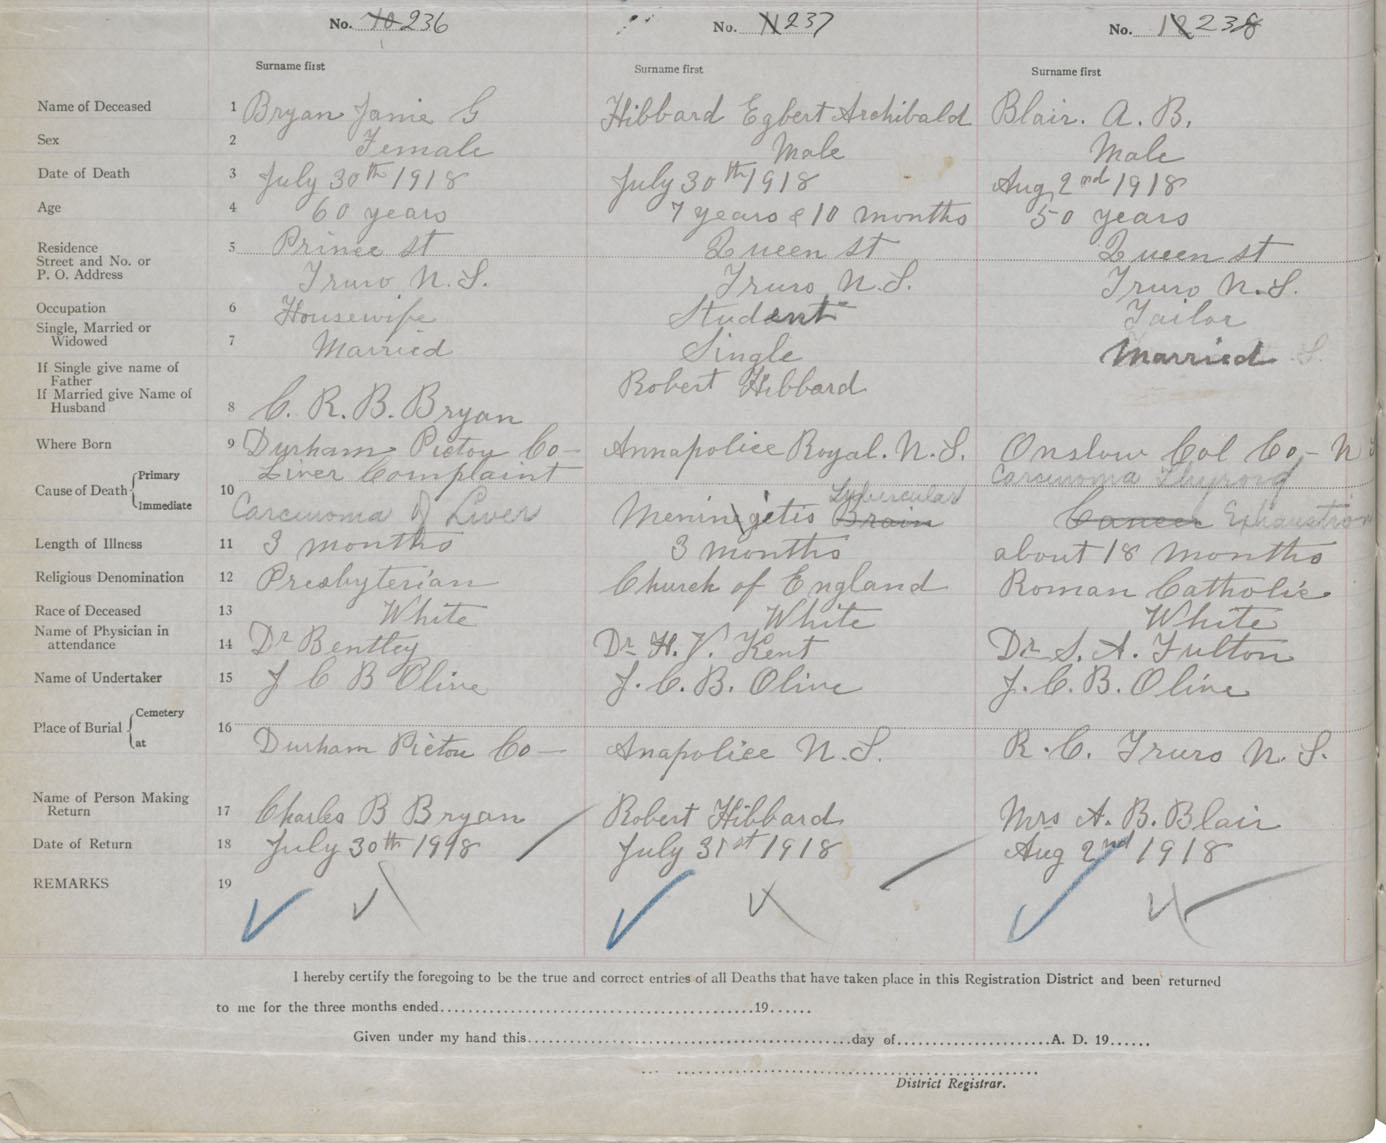 No. 10 236 No. 11 237 No. 12 238
Surname first Surname first Surname first
Name of Deceased 1 Bryan Janie G Hibbard Egbert Archibald Blair. A. B.
Sex 2 Female Male Male
Date of Death 3 July 30th 1918 July 30th 1918 Aug 2nd 1918
Age 4 60 years 7 years & 10 months 50 years
Residence 5 Prince St Queen St Queen St
Street and No. or
P. O. Address Truro N. S. Truro N. S. Truro N. S.
Occupation 6 Housewife Student Tailor
Single, Married or
Widowed 7 Married Single Married
If Single give name of
Father Robert Hibbard
If Married give Name of
Husband 8 C. R. B. Bryan
Where Born 9 Durham Pictou Co— Annapolice Royal. N. S. Onslow Col Co,— N S
Cause of Death Primary Liver Complaint Tubercular Carcinoma Thyroid
Immediate 10 Carcinoma of Liver Meningetis Brain Cancer Exhaustion
Length of Illness 11 3 months 3 months about 18 months
Religious Denomination 12 Presbyterian Church of England Roman Catholic
Race of Deceased 13 White White White
Name of Physician in
attendance 14 Dr Bentley Dr H. V. Kent Dr S. A. Fulton
Name of Undertaker 15 J C B Olive J. C. B. Olive J. C. B. Olive
Place of Burial Cemetery 16
at Durham Pictou Co— Anapolice N. S. R. C. Truro N. S.
Name of Person Making
Return 17 Charles B Bryan Robert Hibbard Mrs A. B. Blair
Date of Return 18 July 30th 1918 July 31st 1918 Aug 2nd 1918
REMARKS 19
I hereby certify the foregoing to be the true and correct entries of all Deaths that have taken place in this Registration District and been returned
to me for the three months ended..........19......
Given under my hand this..........day of..........A. D. 19......
District Registrar.